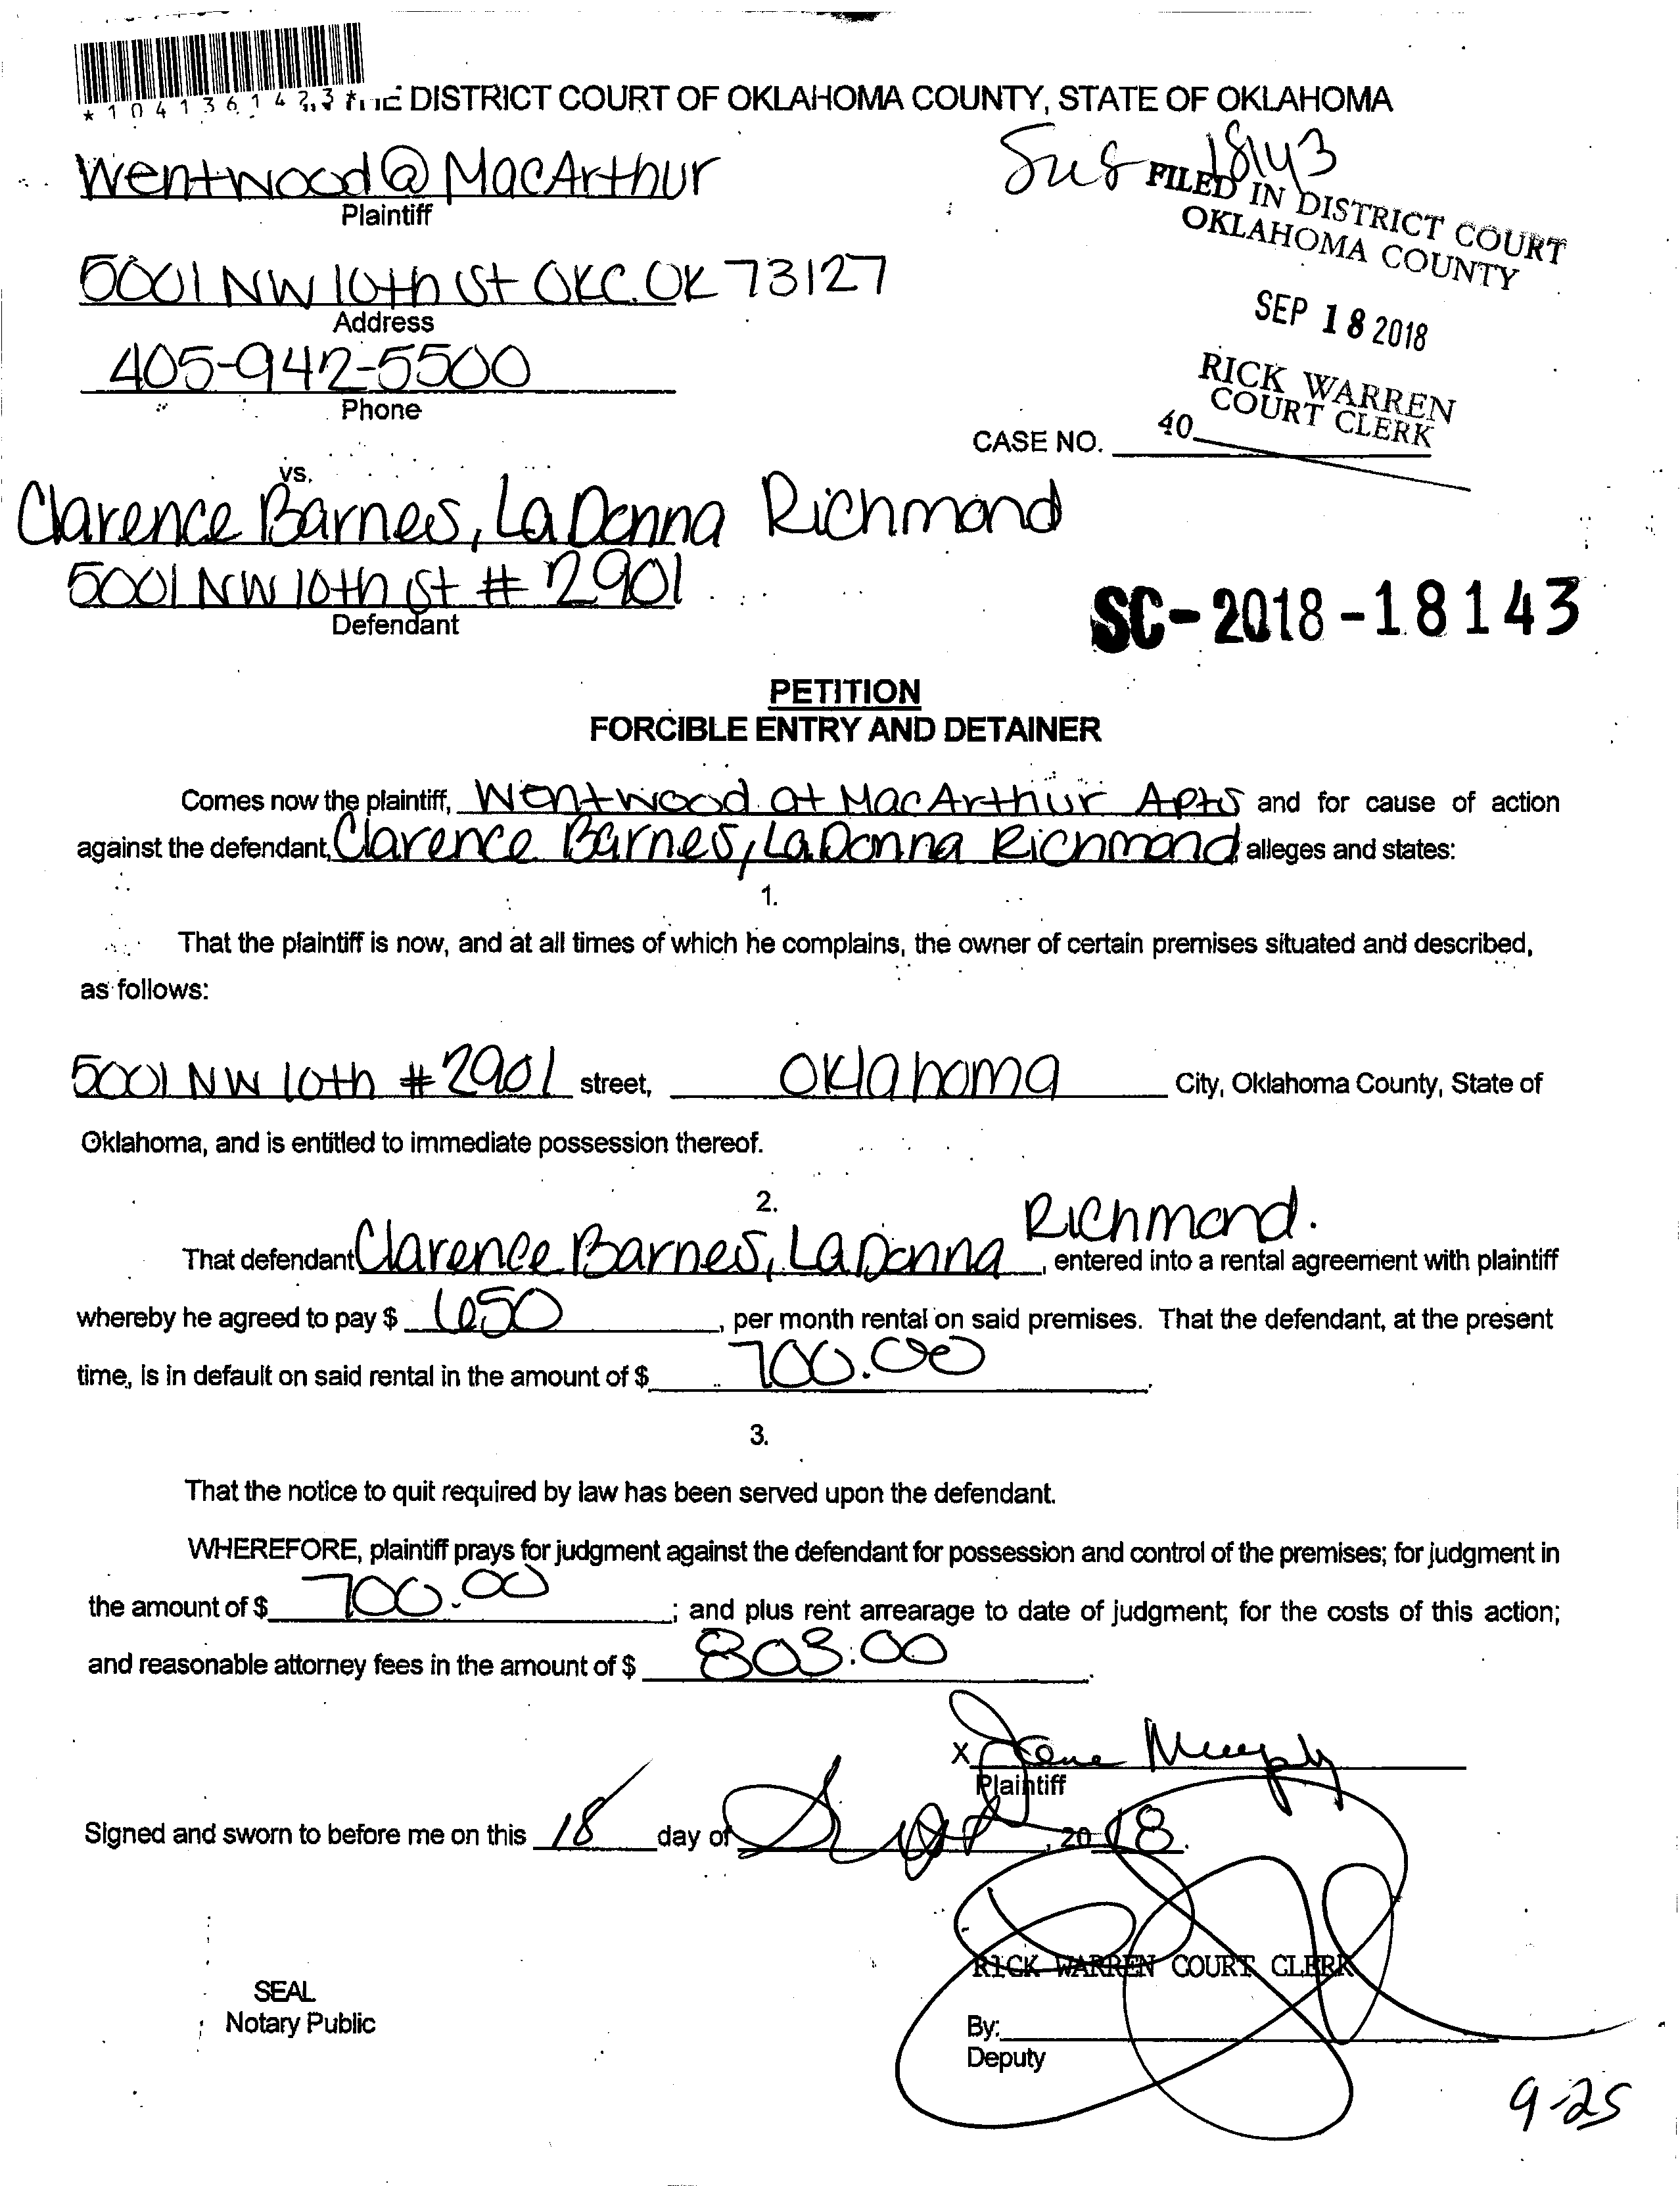 *1041361423*
THE DISTRICT COURT OF OKLAHOMA COUNTY, STATE OF OKLAHOMA
Wentwood @ MacArthur
Plaintiff
18143
FILED IN DISTRICT COURT
OKLAHOMA COUNTY
5001 NW 10th St OKC. OK 73127
Address
SEP 18 2018
405-942-5500
Phone
RICK WARREN
COURT CLERK
CASE NO.
40
vs.
Clarence Barnes, LaDonna Richmond
5001 NW 10th St # 2901
Defendant
SC-2018-18143
PETITION
FORCIBLE ENTRY AND DETAINER
Comes now the plaintiff, Wentwood at MacArthur Apts and for cause of action
against the defendant, Clarence Barnes, LaDonna Richmond alleges and states:
1.
That the plaintiff is now, and at all times of which he complains, the owner of certain premises situated and described,
as follows:
5001 NW 10th #2901 street, Oklahoma City, Oklahoma County, State of
Oklahoma, and is entitled to immediate possession thereof.
2.
That defendant Clarence Barnes, LaDonna Richmond. , entered into a rental agreement with plaintiff
whereby he agreed to pay $ 650 , per month rental on said premises. That the defendant, at the present
time, is in default on said rental in the amount of $ 700.00 .
3.
That the notice to quit required by law has been served upon the defendant.
WHEREFORE, plaintiff prays for judgment against the defendant for possession and control of the premises; for judgment in
the amount of $ 700.00 ; and plus rent arrearage to date of judgment; for the costs of this action;
and reasonable attorney fees in the amount of $ 803.00 .
X Murphy
Plaintiff
Signed and sworn to before me on this 18 day of Sept , 20 18 .
RICK WARREN COURT CLERK
SEAL
Notary Public
By:
Deputy
9-25